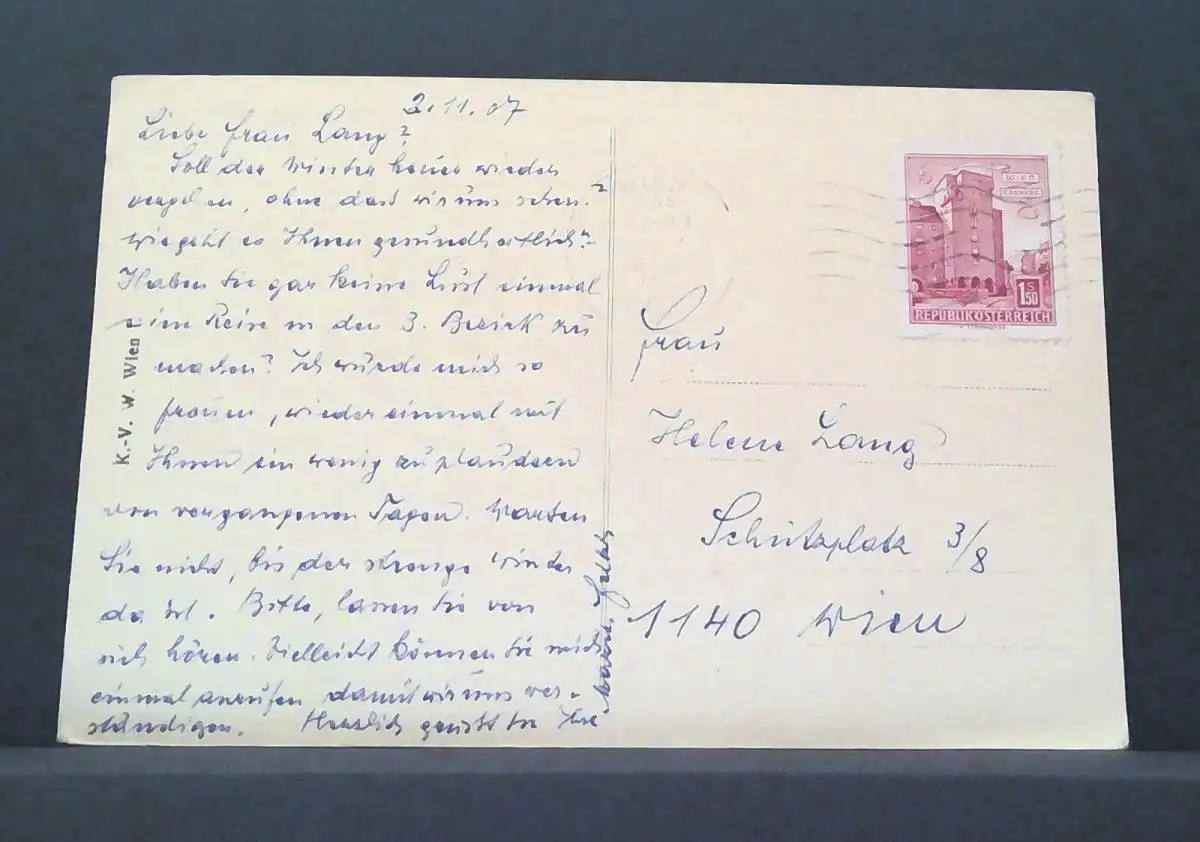 2.11.67
Liebe Frau Lang!
Soll der Winter heuer wieder
vergehen, ohne dass wir uns sehen?
Wie geht es Ihnen gesundheitlich?
Haben Sie gar keine Lust einmal
eine Reise in den 3. Bezirk zu
machen? Ich würde mich so
freuen, wieder einmal mit
Ihnen ein wenig zu plaudern
von vergangenen Tagen. Warten
Sie nicht, bis der strenge Winter
da ist. Bitte, lassen Sie von
sich hören. Vielleicht können Sie mich
einmal anrufen damit wir uns ver-
ständigen. Herzlich grüsst Sie Ihre
K.-V. W. Wien
WIEN
1 S 50
REPUBLIK ÖSTERREICH
Frau
Helene Lang
Schützplatz 3/8
1140 Wien